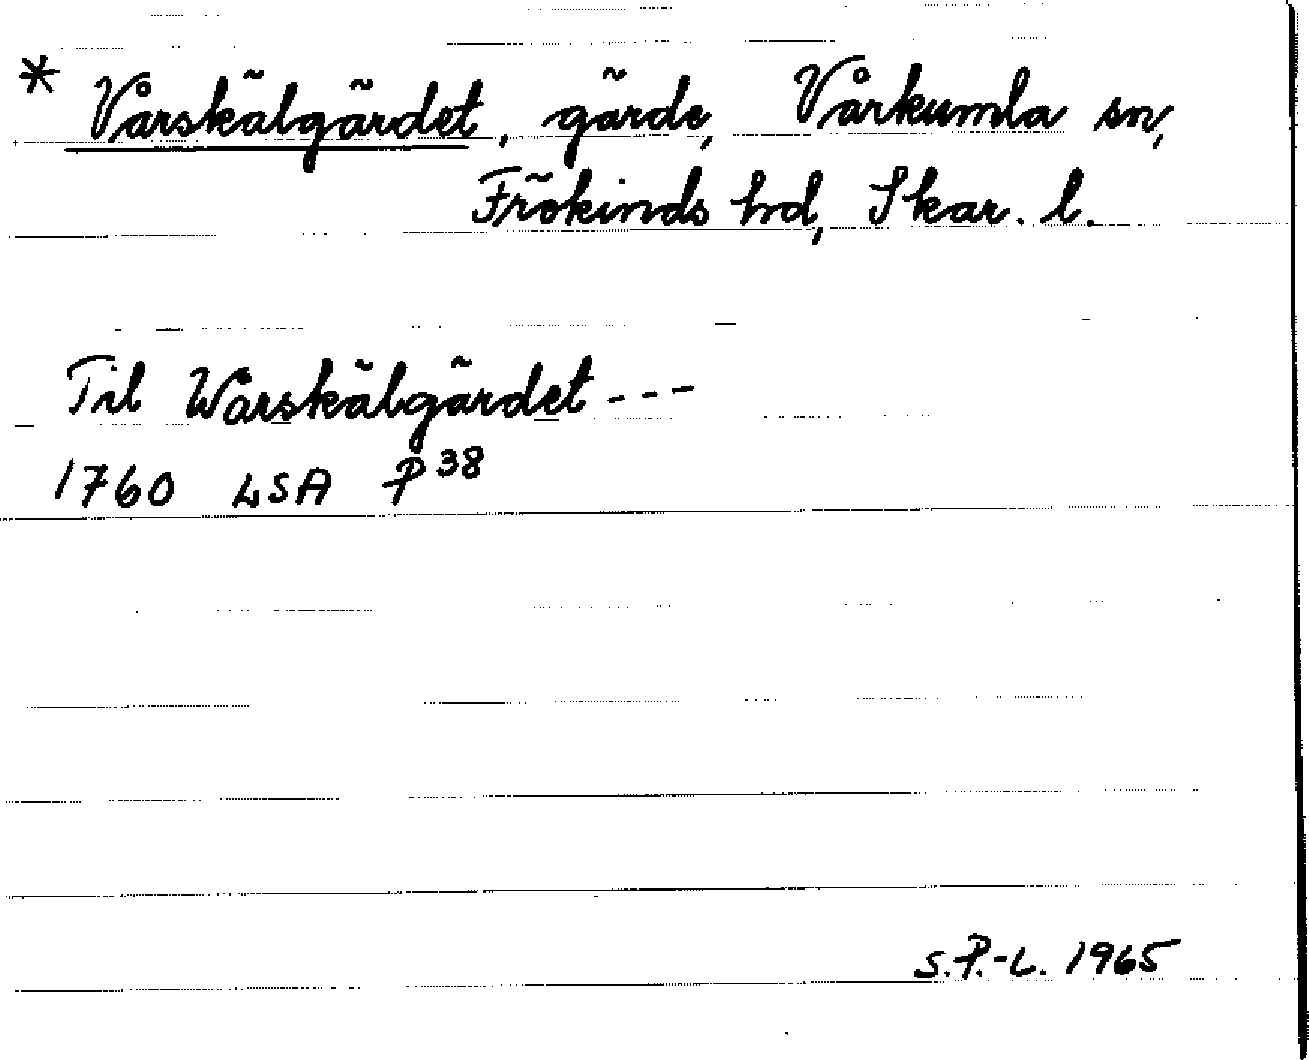 * Vårskälgärdet, gärde, Vårkumla sn,
Frökinds hd, Skar. l.
Til Wårskälgärdet ---
1760 LSA P 38
S.P.-L. 1965